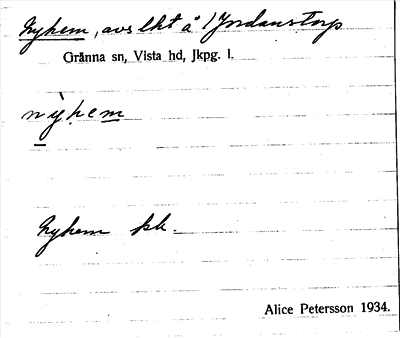 Nyhem, avs lht å 1 Jordanstorp
Gränna sn, Vista hd, Jkpg. l.
nỳhem
Nyhem kk.
Alice Petersson 1934.